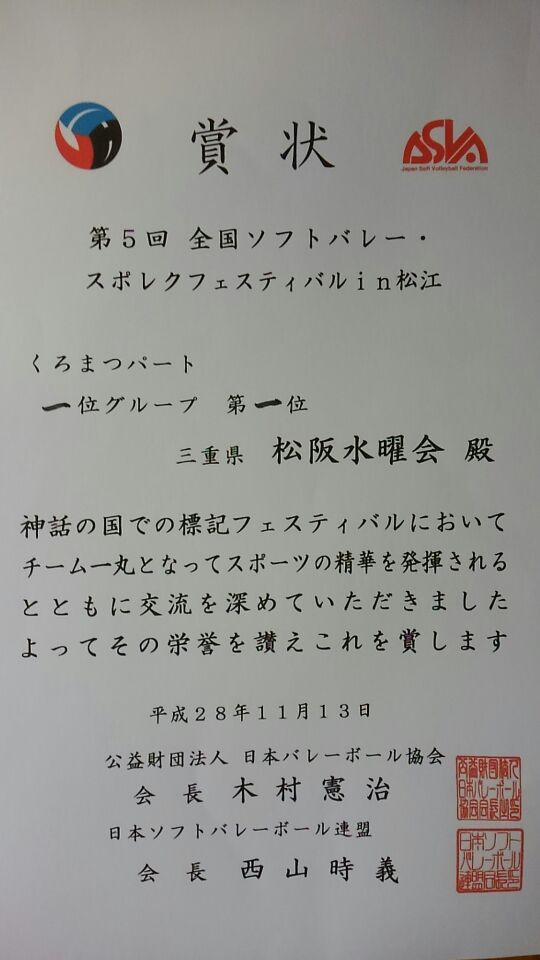 賞状
ASVA
Japan Soft Volleyball Federation
第5回 全国ソフトバレー・
スポレクフェスティバルin松江
くろまつパート
一位グループ 第一位
三重県 松阪水曜会 殿
神話の国での標記フェスティバルにおいて
チーム一丸となってスポーツの精華を発揮される
とともに交流を深めていただきました
よってその栄誉を讃えこれを賞します
平成28年11月13日
公益財団法人 日本バレーボール協会
会長 木村憲治
日本ソフトバレーボール連盟
会長 西山時義
日本ソフト
バレーボール
連盟会長印